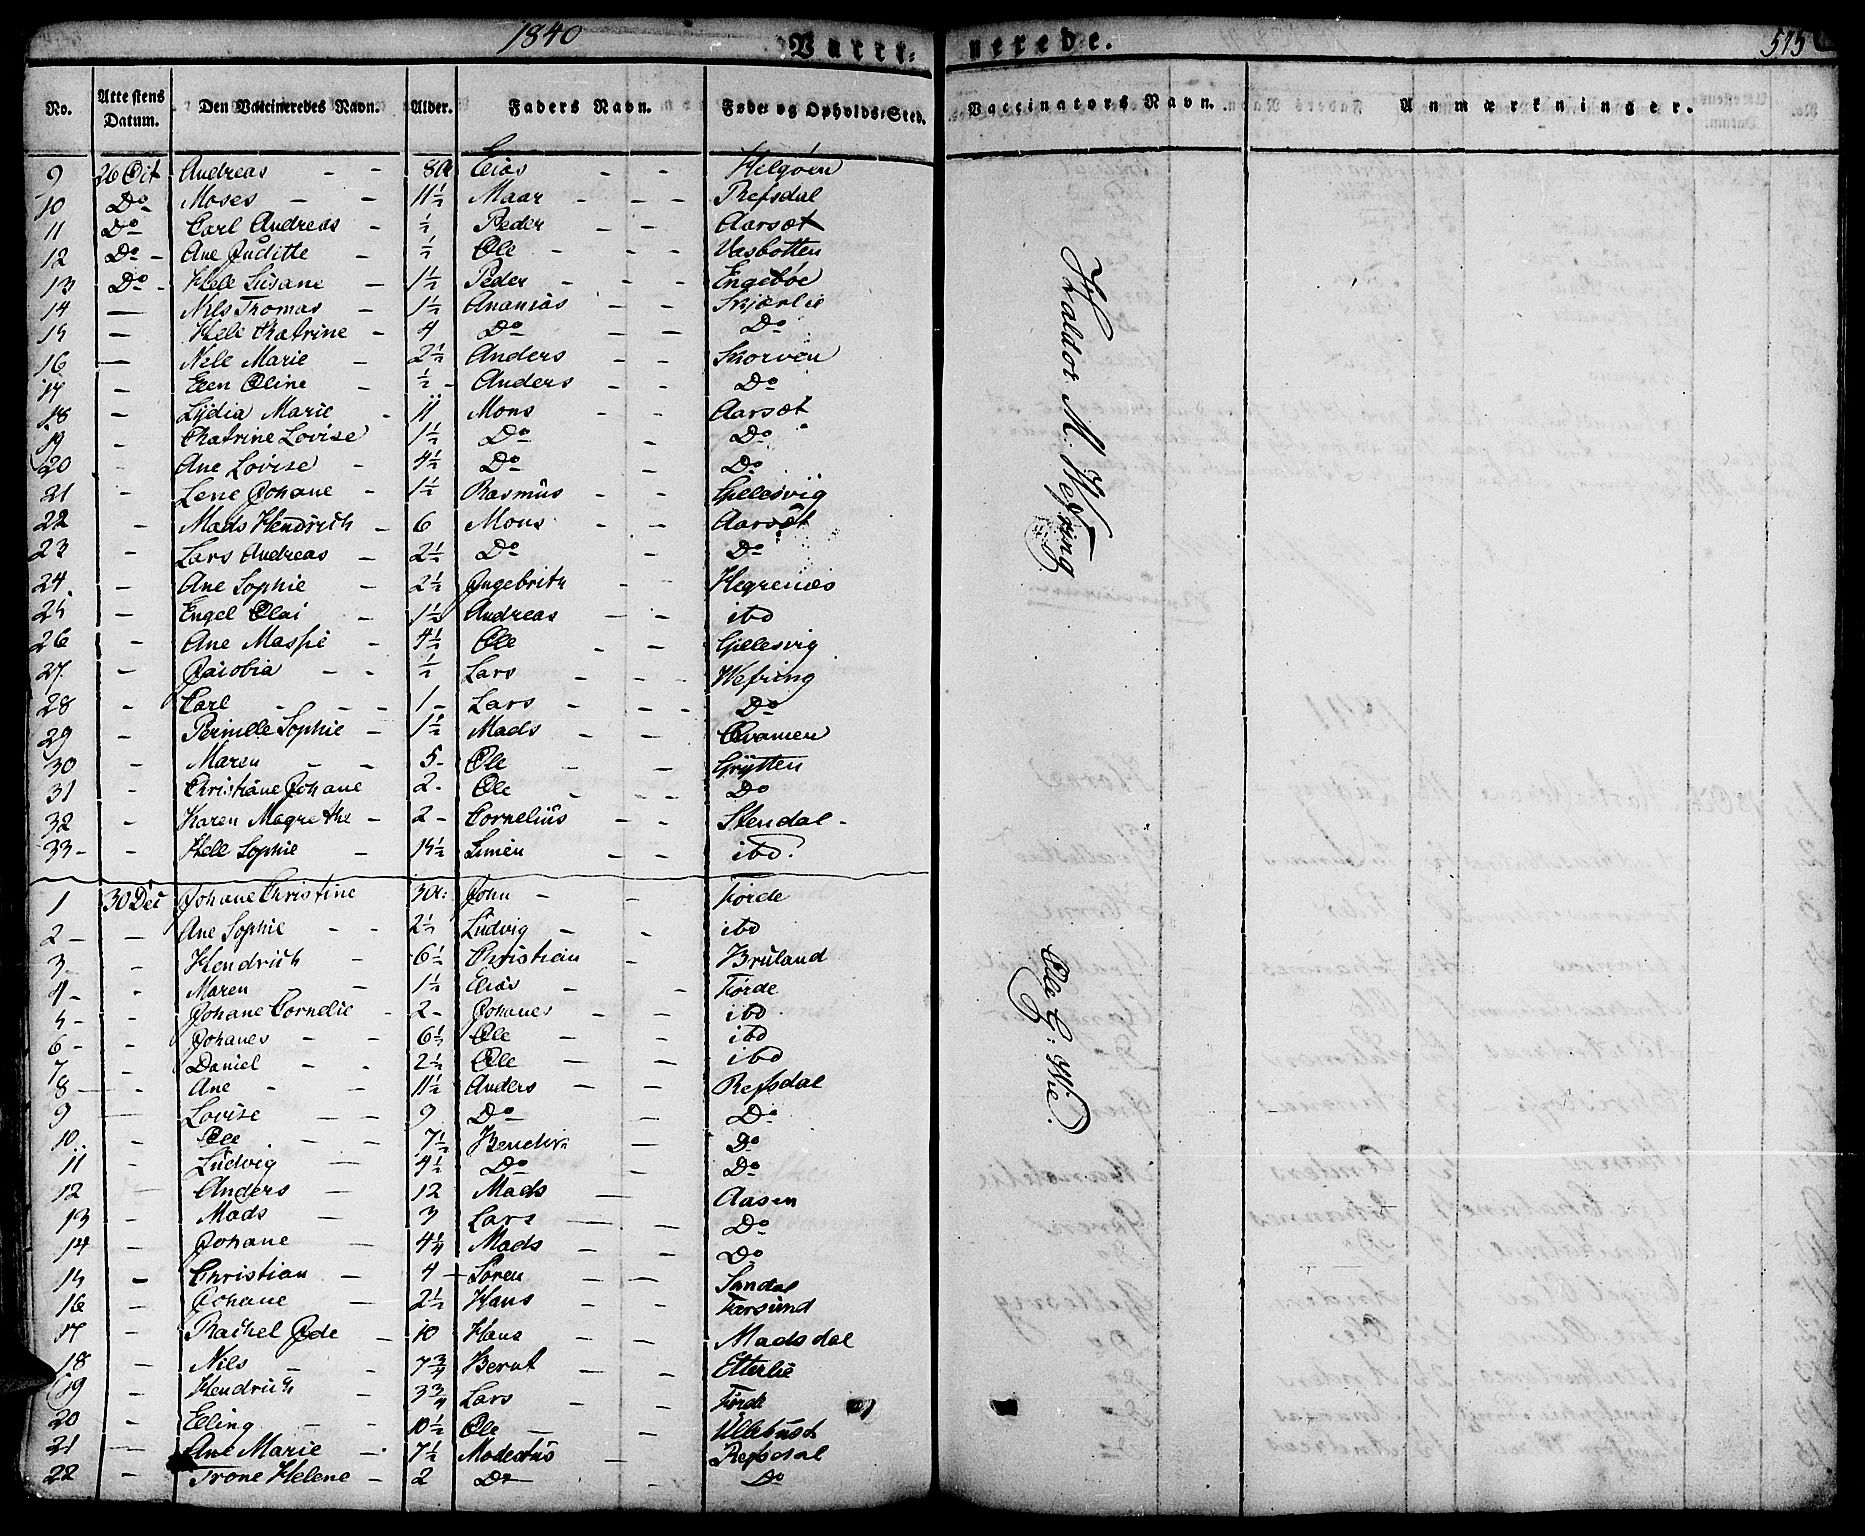 1840 Vacci= nerede. 515
No. Attestens Datum. Den Vaccineredes Navn. Alder. Faders Navn. Føde= og Opholds=Sted. Vaccinators Navn. Anmærkninger.
9 26 Oct Andreas - - 8 Elias - - Helgøen
10 Do Moses - - 11½ Maar - - - Refsdal
11 Do Carl Andreas - ½ Peder - - Aarsæt
12 Do - Ane Juditte - ½ Ole - - - Vasbotten
13 Do - Hele Susane - 1½ Peder - - - Engebøe
14 - Nils Thomas - 1½ Ananias - - Skjærlie
15 - Hele Chatrine - 4 Do - - Do
16 - Nele Marie - 2½ Anders - - Skorven
17 - Elen Oline - ½ - Anders - - Do
18 - Lydia Marie - 11 Mons - - Aarsæt
19 - Chatrine Lovise 1½ Do - Do
20 - Ane Lovise - 4½ Do - Do
21 - Lene Johane - 1½ Rasmus - - Gjelesvig
22 - Mads Hendrich - 6 Mons - - Aarsæt
23 - Lars Andreas - 2½ Do - Do
24. - Ane Sophie - 2½ Ingebrith - Hegrenæs
25 - Engel Olai - 1½ Andreas - - ibd
26 - Ane Massie - 4½ Ole - - Gjelesvig
27. - Jacobia - - ½ Lars - - - Wefring
28 - Carl - - - 1 - Lars - - - Do
29 - Pernille Sophie - 1½ Mads - - Qvamen
30 - Maren - - 5 - Ole - - Grytten
31 - Christiane Johane 2 - Ole - - - Do
32 - Karen Magrethe - 2 - Cornelius - - Stendal -
33 - - Hele Sophie - 15½ Simen - - ibd.
Haldor M. Wefring
1 30 Dec Johane Christine 3 A: John - Førde
2 - - Ane Sophie - - 2½ Ludvig - - ibd
3 - - Hendrich - 6½ Christian - Bruland
4 - - Maren - 1½ Elias - - Førde
5 - - Johane Cornelie - 2 - Johanes - - ibd
6 - - Johanes - - 6½ Ole - - ibd
7 - Daniel - - 2½ Ole - - ibd
8 - - Ane - - 11½ Anders - - Refsdal
9 - Lovise - - 9 Do - Do
10. - Ole - - 7½ Bendix - Do
11 - Ludvig - 4½ Do - Do
12 - Anders - 12 Mads - Aasen
13 - Mads - 3 Lars - - Do
14 - Johane - 4¼ Mads - - Do
15 - Christian - 4 - Søren - - Sandal
16 - Johane - 2½ Hans - - Farsund
17 - Rachel Jde - 10 Hans - - Madsdal
18 - Nils - 7¾ Bernt - - Etterlie
19 - Hendrich - 3¾ Lars - - Førde
20 - Elling - - 10½ Ole - - Ullebust
21 - Ane Marie - 7½ Modestus - Refsdal
22 - Trone Helene - 2 Do - Do
Ole C: Wie.